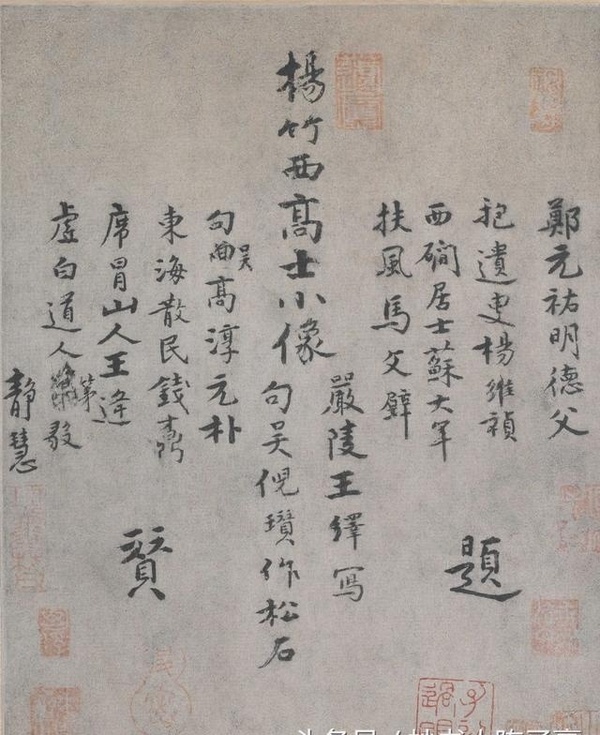 鄭元祐明德父
抱遺叟楊維禎
西磵居士蘇大年
扶風馬文璧
題
楊竹西高士小像
嚴陵王繹寫
句吳倪瓚作松石
句吴高淳元朴
東海散民錢鼒
席冒山人王逢
虛白道人
靜慧
賛